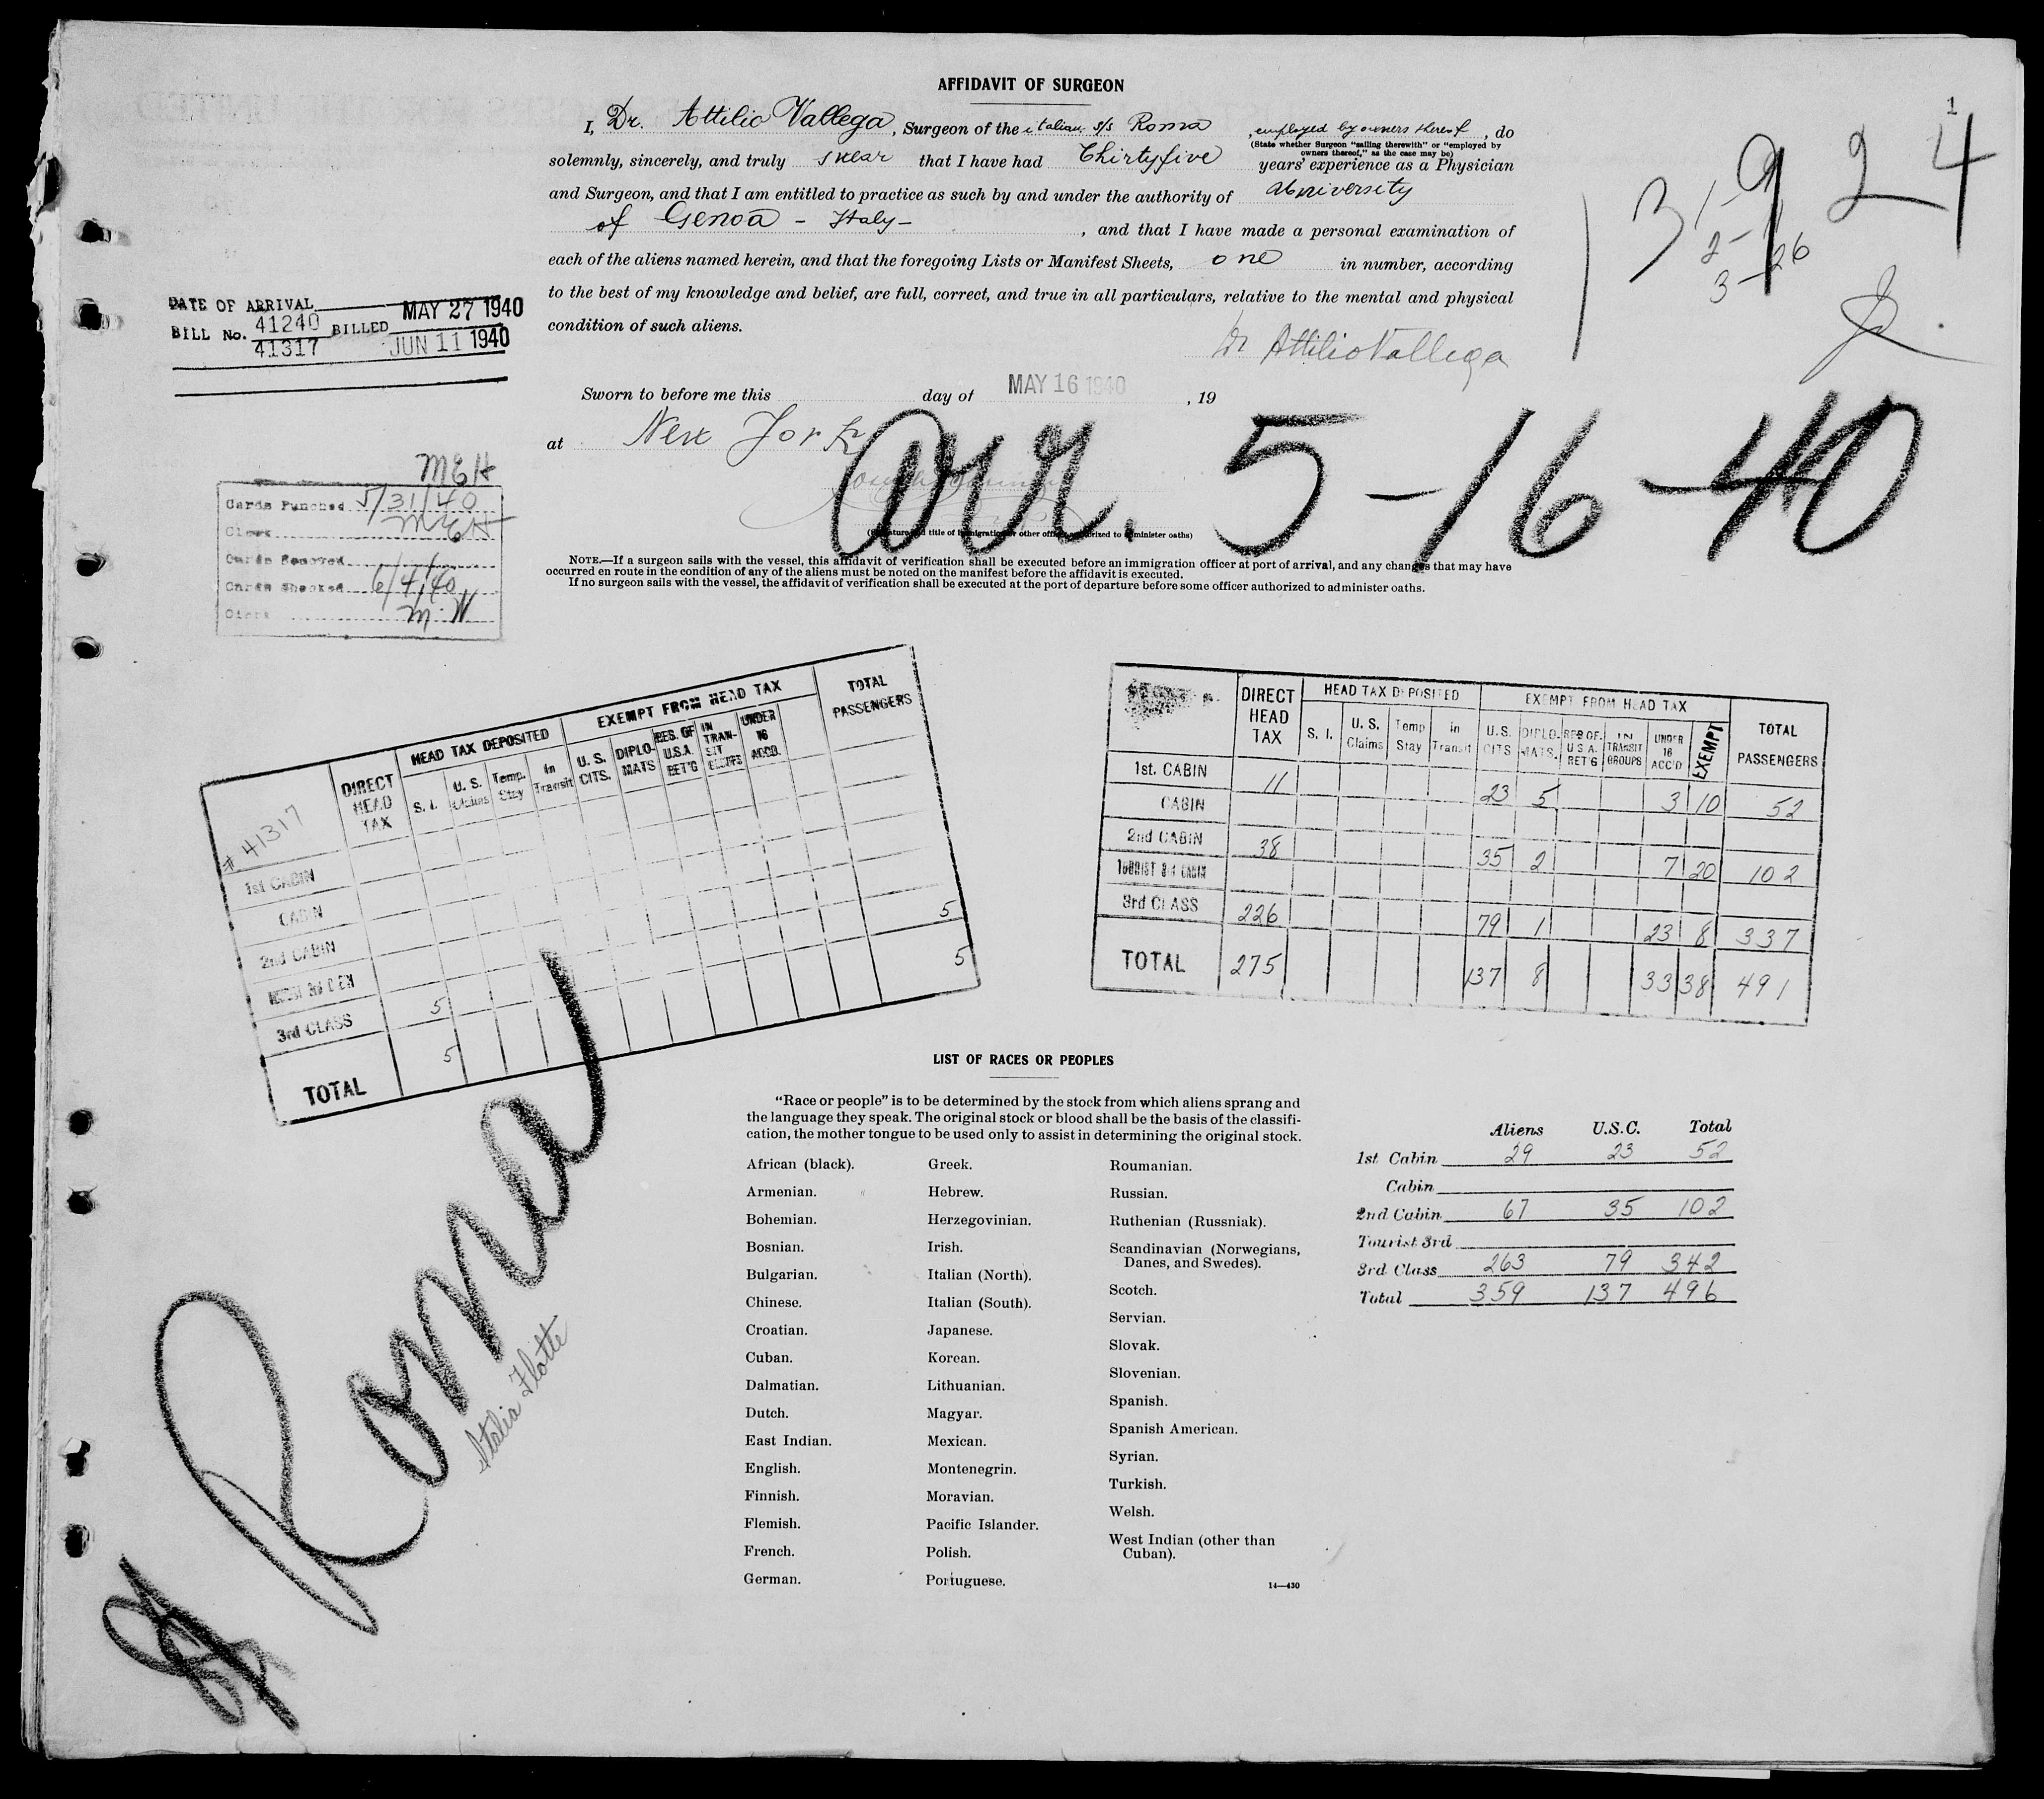 AFFIDAVIT OF SURGEON
1
I, Dr. Attilio Vallega, Surgeon of the italian s/s Roma, employed by owners thereof, do
(State whether Surgeon "sailing therewith" or "employed by
owners thereof," as the case may be)
solemnly, sincerely, and truly swear that I have had Thirtyfive years' experience as a Physician
and Surgeon, and that I am entitled to practice as such by and under the authority of University
of Genoa - Italy -, and that I have made a personal examination of
each of the aliens named herein, and that the foregoing Lists or Manifest Sheets, one in number, according
to the best of my knowledge and belief, are full, correct, and true in all particulars, relative to the mental and physical
condition of such aliens.
Dr Attilio Vallega
13924
1-1
2-
3-26
DATE OF ARRIVAL MAY 27 1940
BILL No. 41240 BILLED
41317 JUN 11 1940
Sworn to before me this day of MAY 16 1940, 19
at New York
arr. 5-16-40
(Signature and title of immigration or other officer authorized to administer oaths)
NOTE.—If a surgeon sails with the vessel, this affidavit of verification shall be executed before an immigration officer at port of arrival, and any changes that may have
occurred en route in the condition of any of the aliens must be noted on the manifest before the affidavit is executed.
If no surgeon sails with the vessel, the affidavit of verification shall be executed at the port of departure before some officer authorized to administer oaths.
MEH
Cards Punched 5/31/40
Clerk MEH
Cards Removed
Cards Checked 6/4/40
Clerk M.W
# 41317
DIRECT HEAD TAX
HEAD TAX DEPOSITED
S. I. U. S. Claims Temp. Stay In Transit
EXEMPT FROM HEAD TAX
U. S. CITS. DIPLO-MATS RES. OF U.S.A. RET'G IN TRAN-SIT GROUPS UNDER 16 ACCD.
TOTAL PASSENGERS
1st CABIN
CABIN
2nd CABIN
3rd CLASS 5 5
TOTAL 5 5
DIRECT HEAD TAX
HEAD TAX DEPOSITED
S. I. U. S. Claims Temp Stay In Transit
EXEMPT FROM HEAD TAX
U.S. CITS DIPLO-MATS. RES OF. U S A RET'G IN TRANSIT GROUPS UNDER 16 ACC'D EXEMPT
TOTAL PASSENGERS
1st. CABIN 11 23 5 3 10 52
CABIN
2nd CABIN 38 35 2 7 20 102
TOURIST 3rd CABIN
3rd CLASS 226 79 1 23 8 337
TOTAL 275 137 8 33 38 491
Roma
Italia Flotte
LIST OF RACES OR PEOPLES
"Race or people" is to be determined by the stock from which aliens sprang and
the language they speak. The original stock or blood shall be the basis of the classifi-
cation, the mother tongue to be used only to assist in determining the original stock.
African (black).
Armenian.
Bohemian.
Bosnian.
Bulgarian.
Chinese.
Croatian.
Cuban.
Dalmatian.
Dutch.
East Indian.
English.
Finnish.
Flemish.
French.
German.
Greek.
Hebrew.
Herzegovinian.
Irish.
Italian (North).
Italian (South).
Japanese.
Korean.
Lithuanian.
Magyar.
Mexican.
Montenegrin.
Moravian.
Pacific Islander.
Polish.
Portuguese.
Roumanian.
Russian.
Ruthenian (Russniak).
Scandinavian (Norwegians,
Danes, and Swedes).
Scotch.
Servian.
Slovak.
Slovenian.
Spanish.
Spanish American.
Syrian.
Turkish.
Welsh.
West Indian (other than
Cuban).
14—430
Aliens U.S.C. Total
1st Cabin 29 23 52
Cabin
2nd Cabin 67 35 102
Tourist 3rd
3rd Class 263 79 342
Total 359 137 496